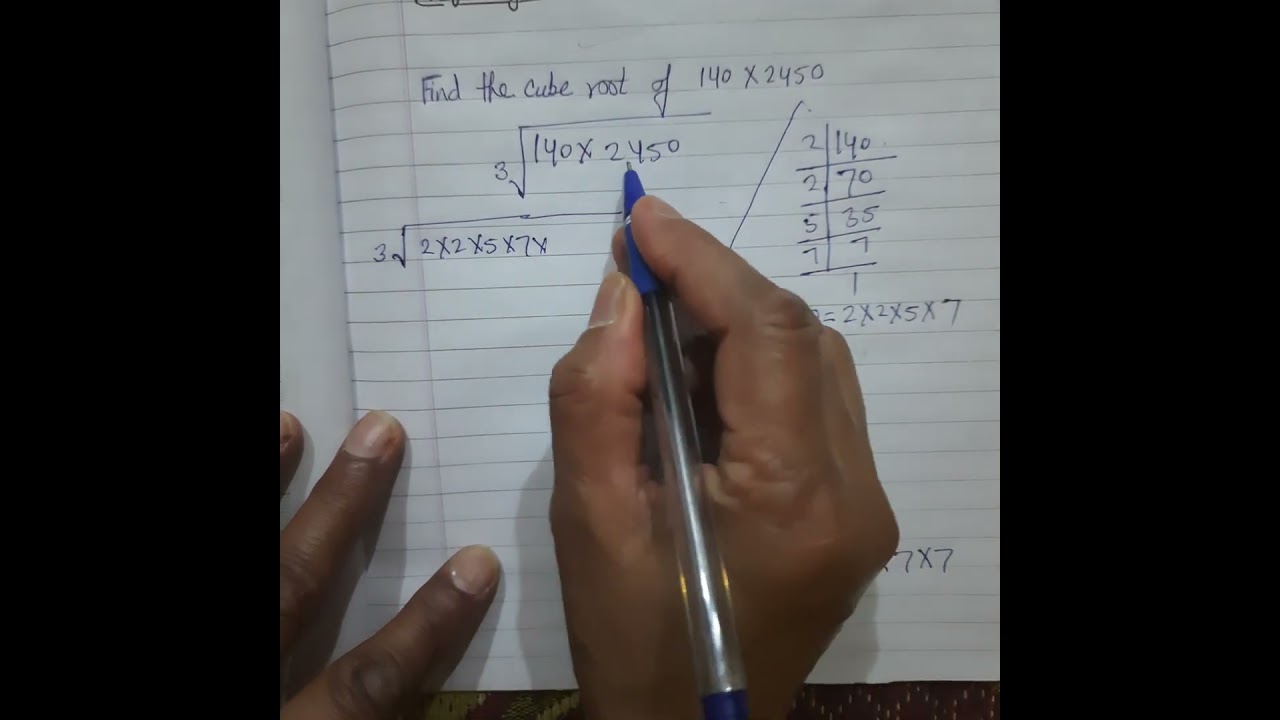 Find the cube root of 140 X 2450
3√140 X 2450
3√2X2X5X7X
2 | 140
2 | 70
5 | 35
7 | 7
1
= 2X2X5X7
7X7